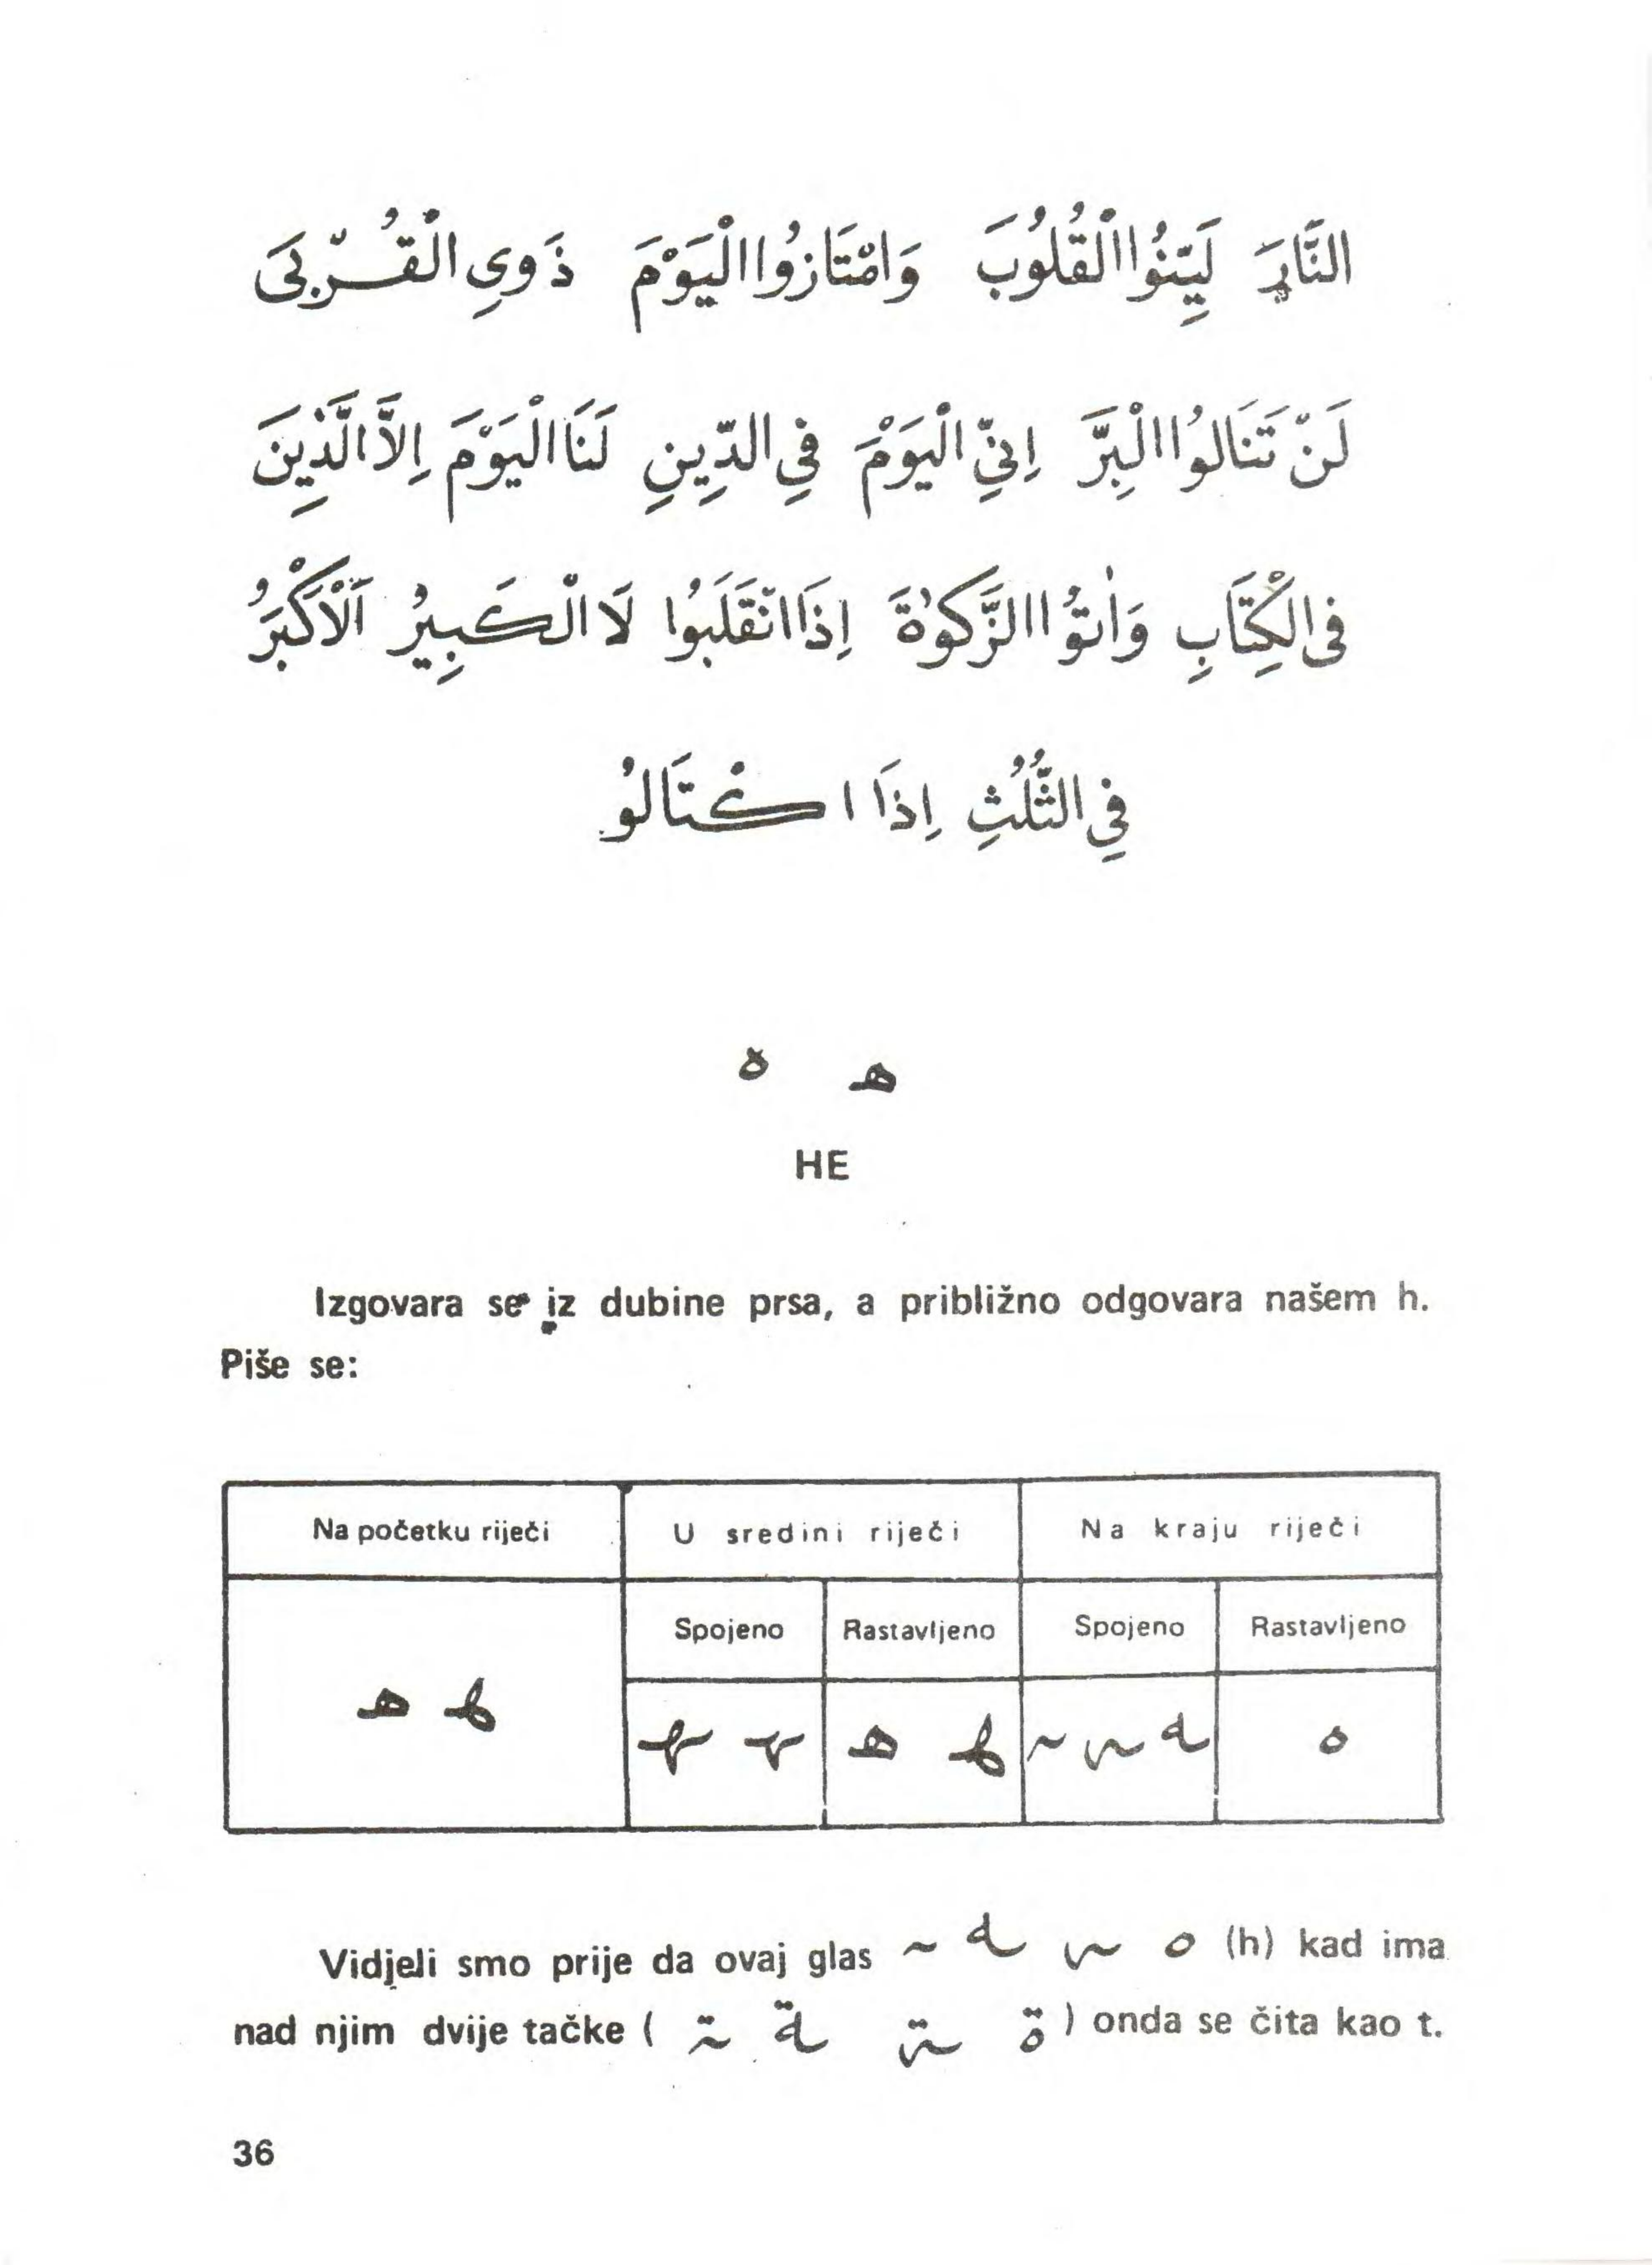 النَّارَ لَيِّنُوا الْقُلُوبَ وَامْتَازُوا الْيَوْمَ ذَوِي الْقُرْبَى
لَنْ تَنَالُوا الْبِرَّ اِنِّي الْيَوْمَ فِي الدِّينِ لَنَا الْيَوْمَ اِلَّا الَّذِينَ
فِي الْكِتَابِ وَاٰتُوا الزَّكٰوةَ اِذَا انْقَلَبُوا لَا الْكَبِيرُ اَلْاَكْبَرُ
فِي الثُّلُثِ اِذَا اكْتَالُو
هـ ه
HE
Izgovara se iz dubine prsa, a približno odgovara našem h.
Piše se:
Na početku riječi U sredini riječi Na kraju riječi
Spojeno Rastavljeno Spojeno Rastavljeno
هـ هـ ـهـ ـهـ هـ هـ ـه ـه ـه ه
Vidjeli smo prije da ovaj glas ـه ـه ـه ه (h) kad ima
nad njim dvije tačke ( ـة ـة ـة ة ) onda se čita kao t.
36